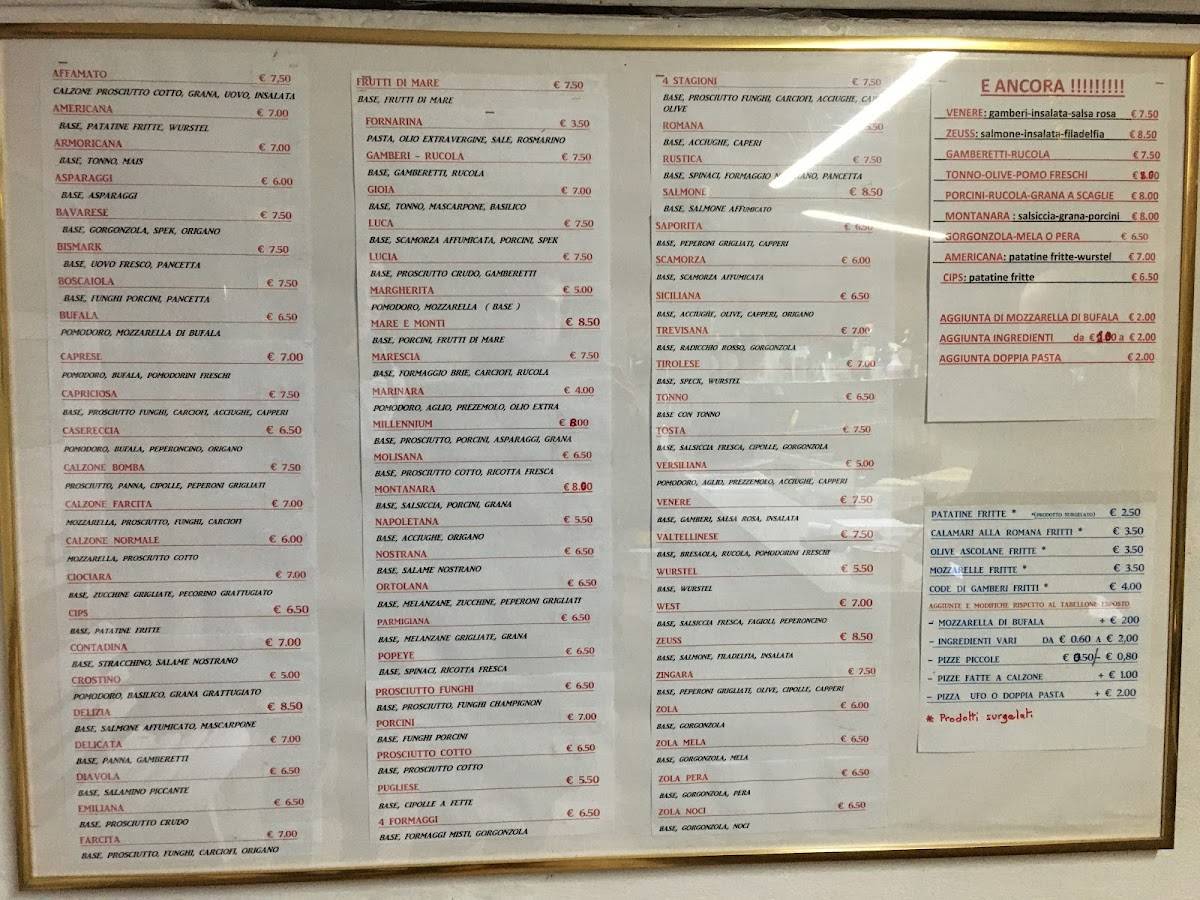 AFFAMATO € 7,50
CALZONE PROSCIUTTO COTTO, GRANA, UOVO, INSALATA
AMERICANA € 7.00
BASE, PATATINE FRITTE, WURSTEL
ARMORICANA € 7.00
BASE, TONNO, MAIS
ASPARAGGI € 6.00
BASE, ASPARAGGI
BAVARESE € 7.50
BASE, GORGONZOLA, SPEK, ORIGANO
BISMARK € 7.50
BASE, UOVO FRESCO, PANCETTA
BOSCAIOLA € 7.50
BASE, FUNGHI PORCINI, PANCETTA
BUFALA € 6.50
POMODORO, MOZZARELLA DI BUFALA
CAPRESE € 7.00
POMODORO, BUFALA, POMODORINI FRESCHI
CAPRICIOSA € 7.50
BASE, PROSCIUTTO FUNGHI, CARCIOFI, ACCIUGHE, CAPPERI
CASERECCIA € 6.50
POMODORO, BUFALA, PEPERONCINO, ORIGANO
CALZONE BOMBA € 7.50
PROSCIUTTO, PANNA, CIPOLLE, PEPERONI GRIGLIATI
CALZONE FARCITA € 7.00
MOZZARELLA, PROSCIUTTO, FUNGHI, CARCIOFI
CALZONE NORMALE € 6.00
MOZZARELLA, PROSCIUTTO COTTO
CIOCIARA € 7.00
BASE, ZUCCHINE GRIGLIATE, PECORINO GRATTUGIATO
CIPS € 6.50
BASE, PATATINE FRITTE
CONTADINA € 7.00
BASE, STRACCHINO, SALAME NOSTRANO
CROSTINO € 5.00
POMODORO, BASILICO, GRANA GRATTUGIATO
DELIZIA € 8.50
BASE, SALMONE AFFUMICATO, MASCARPONE
DELICATA € 7.00
BASE, PANNA, GAMBERETTI
DIAVOLA € 6.50
BASE, SALAMINO PICCANTE
EMILIANA € 6.50
BASE, PROSCIUTTO CRUDO
FARCITA € 7.00
BASE, PROSCIUTTO, FUNGHI, CARCIOFI, ORIGANO
FRUTTI DI MARE € 7.50
BASE, FRUTTI DI MARE
FORNARINA € 3.50
PASTA, OLIO EXTRAVERGINE, SALE, ROSMARINO
GAMBERI - RUCOLA € 7.50
BASE, GAMBERETTI, RUCOLA
GIOIA € 7.00
BASE, TONNO, MASCARPONE, BASILICO
LUCA € 7.50
BASE, SCAMORZA AFFUMICATA, PORCINI, SPEK
LUCIA € 7.50
BASE, PROSCIUTTO CRUDO, GAMBERETTI
MARGHERITA € 5.00
POMODORO, MOZZARELLA ( BASE )
MARE E MONTI € 8.50
BASE, PORCINI, FRUTTI DI MARE
MARESCIA € 7.50
BASE, FORMAGGIO BRIE, CARCIOFI, RUCOLA
MARINARA € 4.00
POMODORO, AGLIO, PREZEMOLO, OLIO EXTRA
MILLENNIUM € 8.00
BASE, PROSCIUTTO, PORCINI, ASPARAGI, GRANA
MOLISANA € 6.50
BASE, PROSCIUTTO COTTO, RICOTTA FRESCA
MONTANARA € 8.00
BASE, SALSICCIA, PORCINI, GRANA
NAPOLETANA € 5.50
BASE, ACCIUGHE, ORIGANO
NOSTRANA € 6.50
BASE, SALAME NOSTRANO
ORTOLANA € 6.50
BASE, MELANZANE, ZUCCHINE, PEPERONI GRIGLIATI
PARMIGIANA € 6.50
BASE, MELANZANE GRIGLIATE, GRANA
POPEYE € 6.50
BASE, SPINACI, RICOTTA FRESCA
PROSCIUTTO FUNGHI € 6.50
BASE, PROSCIUTTO, FUNGHI CHAMPIGNON
PORCINI € 7.00
BASE, FUNGHI PORCINI
PROSCIUTTO COTTO € 6.50
BASE, PROSCIUTTO COTTO
PUGLIESE € 5.50
BASE, CIPOLLE A FETTE
4 FORMAGGI € 6.50
BASE, FORMAGGI MISTI, GORGONZOLA
4 STAGIONI € 7,50
BASE, PROSCIUTTO FUNGHI, CARCIOFI, ACCIUGHE,
OLIVE
ROMANA
BASE, ACCIUGHE, CAPERI
RUSTICA € 7.50
BASE, SPINACI, FORMAGGIO PANCETTA
SALMONE € 8.50
BASE, SALMONE AFFUMICATO
SAPORITA € 6.50
BASE, PEPERONI GRIGLIATI, CAPPERI
SCAMORZA € 6.00
BASE, SCAMORZA AFFUMICATA
SICILIANA € 6.50
BASE, ACCIUGHE, OLIVE, CAPPERI, ORIGANO
TREVISANA € 7.00
BASE, RADICCHIO ROSSO, GORGONZOLA
TIROLESE € 7.00
BASE, SPECK, WURSTEL
TONNO € 6.50
BASE CON TONNO
TOSTA € 7.50
BASE, SALSICCIA FRESCA, CIPOLLE, GORGONZOLA
VERSILIANA € 5.00
POMODORO, AGLIO, PREZZEMOLO, ACCIUGHE, CAPPERI
VENERE € 7.50
BASE, GAMBERI, SALSA ROSA, INSALATA
VALTELLINESE € 7.50
BASE, BRESAOLA, RUCOLA, POMODORINI FRESCHI
WURSTEL € 5.50
BASE, WURSTEL
WEST € 7.00
BASE, SALSICCIA FRESCA, FAGIOLI, PEPERONCINO
ZEUSS € 8.50
BASE, SALMONE, FILADELFIA, INSALATA
ZINGARA € 7.50
BASE, PEPERONI GRIGLIATI, OLIVE, CIPOLLE, CAPPERI
ZOLA € 6.00
BASE, GORGONZOLA
ZOLA MELA € 6.50
BASE, GORGONZOLA, MELA
ZOLA PERA € 6.50
BASE, GORGONZOLA, PERA
ZOLA NOCI € 6.50
BASE, GORGONZOLA, NOCI
E ANCORA !!!!!!!!!
VENERE: gamberi-insalata-salsa rosa € 7.50
ZEUSS: salmone-insalata-filadelfia € 8.50
GAMBERETTI-RUCOLA € 7.50
TONNO-OLIVE-POMO FRESCHI € 8.00
PORCINI-RUCOLA-GRANA A SCAGLIE € 8.00
MONTANARA : salsiccia-grana-porcini € 8.00
GORGONZOLA-MELA O PERA € 6.50
AMERICANA: patatine fritte-wurstel € 7.00
CIPS: patatine fritte € 6.50
AGGIUNTA DI MOZZARELLA DI BUFALA € 2.00
AGGIUNTA INGREDIENTI da € 1.00 a € 2.00
AGGIUNTA DOPPIA PASTA € 2.00
PATATINE FRITTE * *(PRODOTTO SURGELATO) € 2.50
CALAMARI ALLA ROMANA FRITTI * € 3.50
OLIVE ASCOLANE FRITTE * € 3.50
MOZZARELLE FRITTE * € 3.50
CODE DI GAMBERI FRITTI * € 4.00
AGGIUNTE E MODIFICHE RISPETTO AL TABELLONE ESPOSTO
- MOZZARELLA DI BUFALA + € 2.00
- INGREDIENTI VARI DA € 0.60 A € 2,00
- PIZZE PICCOLE € 0.50/- € 0,80
- PIZZE FATTE A CALZONE + € 1.00
- PIZZA UFO O DOPPIA PASTA + € 2.00
* Prodotti surgelati